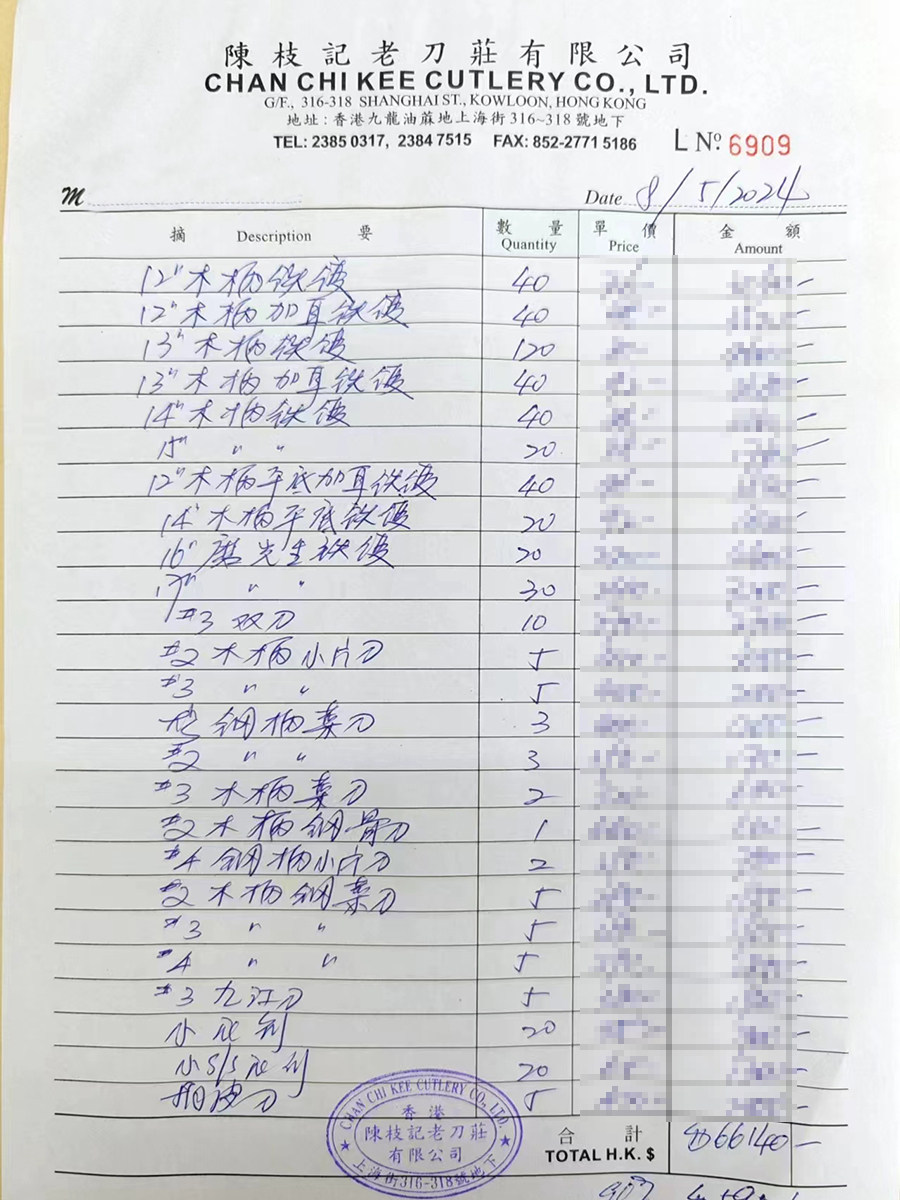 陳枝記老刀莊有限公司
CHAN CHI KEE CUTLERY CO., LTD.
G/F., 316-318 SHANGHAI ST., KOWLOON, HONG KONG
地址：香港九龍油蔴地上海街316~318號地下
TEL: 2385 0317, 2384 7515 FAX: 852-2771 5186 L Nº 6909
M Date 8/5/2024
摘 Description 要 數量 Quantity 單價 Price 金額 Amount
12" 木柄铁镬 40
12" 木柄加耳铁镬 40
13" 木柄铁镬 120
13" 木柄加耳铁镬 40
14" 木柄铁镬 40
15" " " 20
12" 木柄平底加耳铁镬 40
14" 木柄平底铁镬 20
16" 先生铁镬 20
17" " " 30
#3 双刀 10
#2 木柄小片刀 5
#3 " " 5
钢柄菜刀 3
#2 " " 3
#3 木柄菜刀 2
#2 木柄钢骨刀 1
#4 钢柄小片刀 2
#2 木柄钢菜刀 5
#3 " " 5
#4 " " 5
#3 九江刀 5
小 20
小 S/S 20
皮刀 5
合計 TOTAL H.K. $ 66140
CHAN CHI KEE CUTLERY CO., LTD.
香港
陳枝記老刀莊
有限公司
上海街316-318號地下